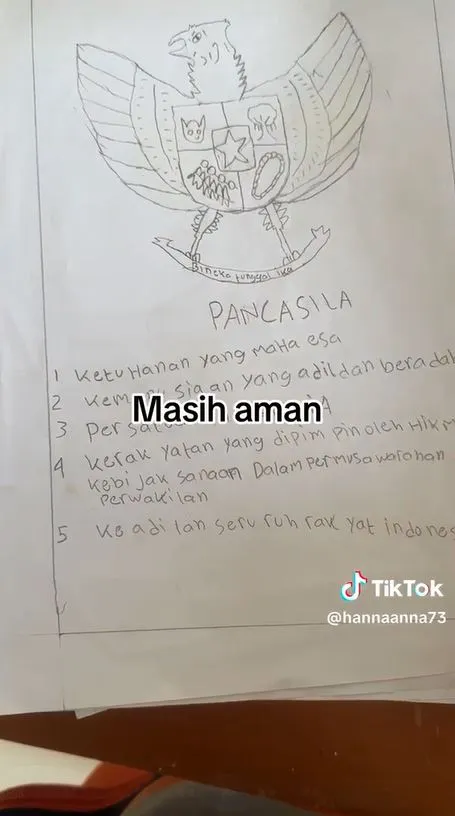 Bineka tunggal ika
PANCASILA
1 Ketuhanan yang maha esa
2 siaan yang adil dan beradab
Masih aman
3
4 Kerak yatan yang dipim pin oleh Hikm
Kebi jak sanaan Dalam Permusawarohan
Perwakilan
5 Ke adi lan seru ruh rak yat indones
TikTok
@hannaanna73